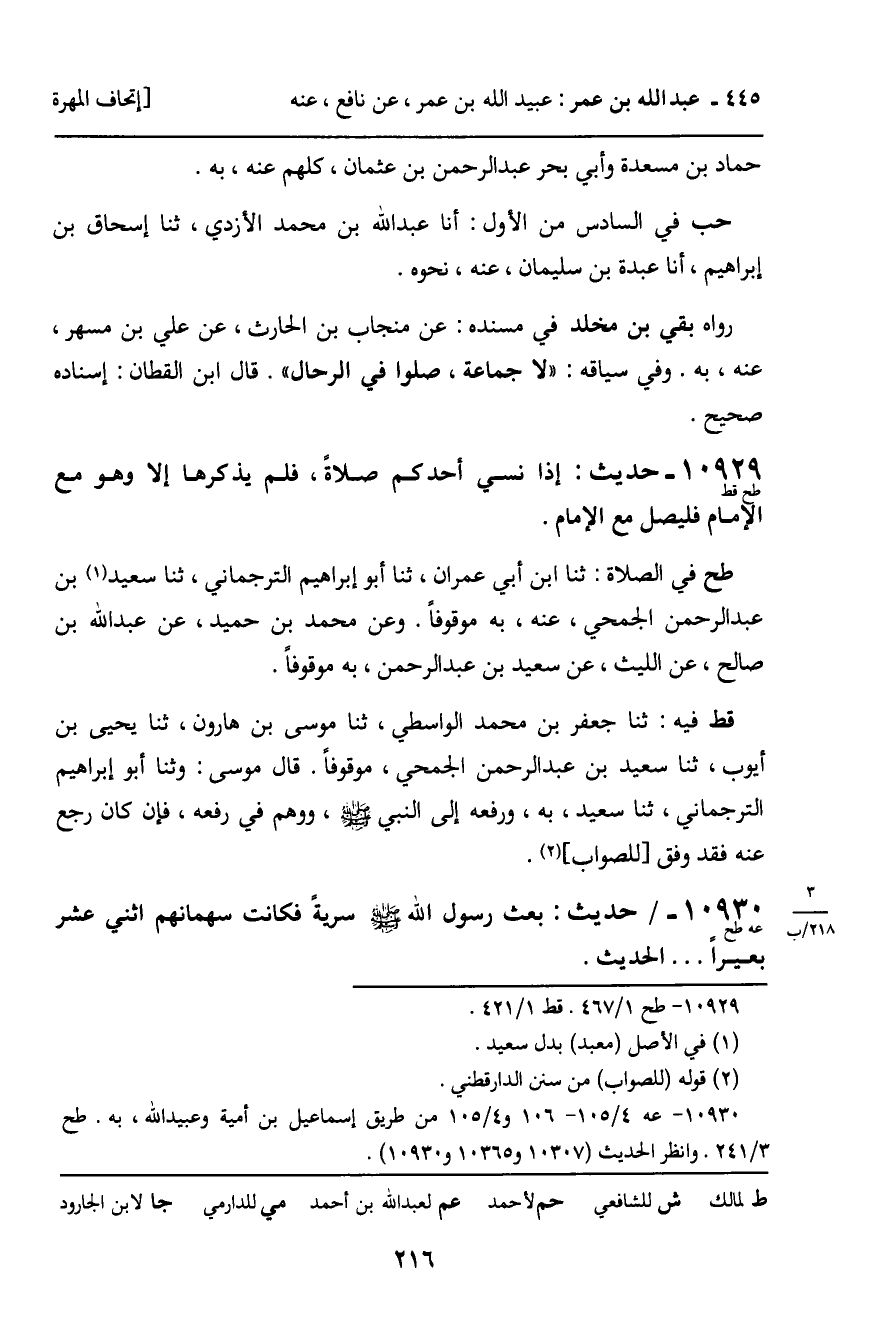 ٤٤٥ ـ عبدالله بن عمر : عبيد الله بن عمر ، عن نافع ، عنه [إتحاف المهرة
حماد بن مسعدة وأبي بحر عبدالرحمن بن عثمان ، كلهم عنه ، به .
حب في السادس من الأول : أنا عبدالله بن محمد الأزدي ، ثنا إسحاق بن
إبراهيم ، أنا عبدة بن سليمان ، عنه ، نحوه .
رواه بقي بن مخلد في مسنده : عن منجاب بن الحارث ، عن علي بن مسهر ،
عنه ، به . وفي سياقه : «لا جماعة ، صلوا في الرحال» . قال ابن القطان : إسناده
صحيح .
١٠٩٢٩ ـ حديث : إذا نسي أحدكم صلاةً ، فلم يذكرها إلا وهو مع
طح قط
الإمام فليصل مع الإمام .
طح في الصلاة : ثنا ابن أبي عمران ، ثنا أبو إبراهيم الترجماني ، ثنا سعيد(١) بن
عبدالرحمن الجمحي ، عنه ، به موقوفاً . وعن محمد بن حميد ، عن عبدالله بن
صالح ، عن الليث ، عن سعيد بن عبدالرحمن ، به موقوفاً .
قط فيه : ثنا جعفر بن محمد الواسطي ، ثنا موسى بن هارون ، ثنا يحيى بن
أيوب ، ثنا سعيد بن عبدالرحمن الجمحي ، موقوفاً . قال موسى : وثنا أبو إبراهيم
الترجماني ، ثنا سعيد ، به ، ورفعه إلى النبي ﷺ ، ووهم في رفعه ، فإن كان رجع
عنه فقد وفق [للصواب](٢) .
١٠٩٣٠ ـ / حديث : بعث رسول الله ﷺ سريةً فكانت سهمانهم اثني عشر
٣
٢١٨/ب
عه طح
بعيراً ... الحديث .
١٠٩٢٩- طح ٤٦٧/١ . قط ٤٢١/١ .
(١) في الأصل (معبد) بدل سعيد .
(٢) قوله (للصواب) من سنن الدارقطني .
١٠٩٣٠- عه ١٠٥/٤- ١٠٦ و١٠٥/٤ من طريق إسماعيل بن أمية وعبيدالله ، به . طح
٢٤١/٣ . وانظر الحديث (١٠٣٠٧ و١٠٣٦٥ و١٠٩٣٠) .
ط لمالك ش للشافعي حم لأحمد عم لعبدالله بن أحمد مي للدارمي جا لابن الجارود
٢١٦